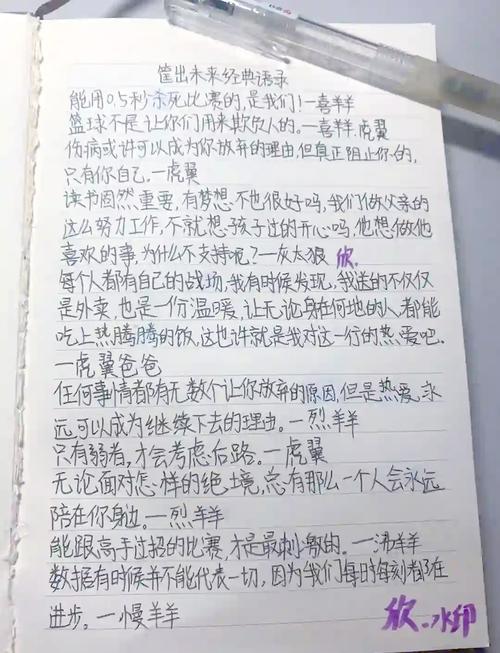 筐出未来经典语录
能用0.5秒杀死比赛的,是我们!一喜羊羊
篮球不是让你们用来欺负人的。一喜羊羊.虎翼
伤病或许可以成为你放弃的理由,但真正阻止你的,
只有你自己.一虎翼
读书固然重要,有梦想不也很好吗,我们做父亲的
这么努力工作,不就想孩子过的开心吗,他想做他
喜欢的事,为什么不支持呢?一灰太狼 欣.
每个人都有自己的战场,我有时候发现,我送的不仅仅
是外卖,也是一份温暖,让无论身在何地的人,都能
吃上热腾腾的饭,这也许就是我对这一行的热爱吧.
一虎翼爸爸
任何事情都有无数个让你放弃的原因,但是热爱,永
远可以成为继续下去的理由。一烈羊羊
只有弱者,才会考虑后路。一虎翼
无论面对怎样的绝境,总有那么一个人会永远
陪在你身边。一烈羊羊
能跟高手过招的比赛,才是最刺激的。一沸羊羊
数据有时候并不能代表一切,因为我们每时每刻都在
进步。一慢羊羊
欣.水印